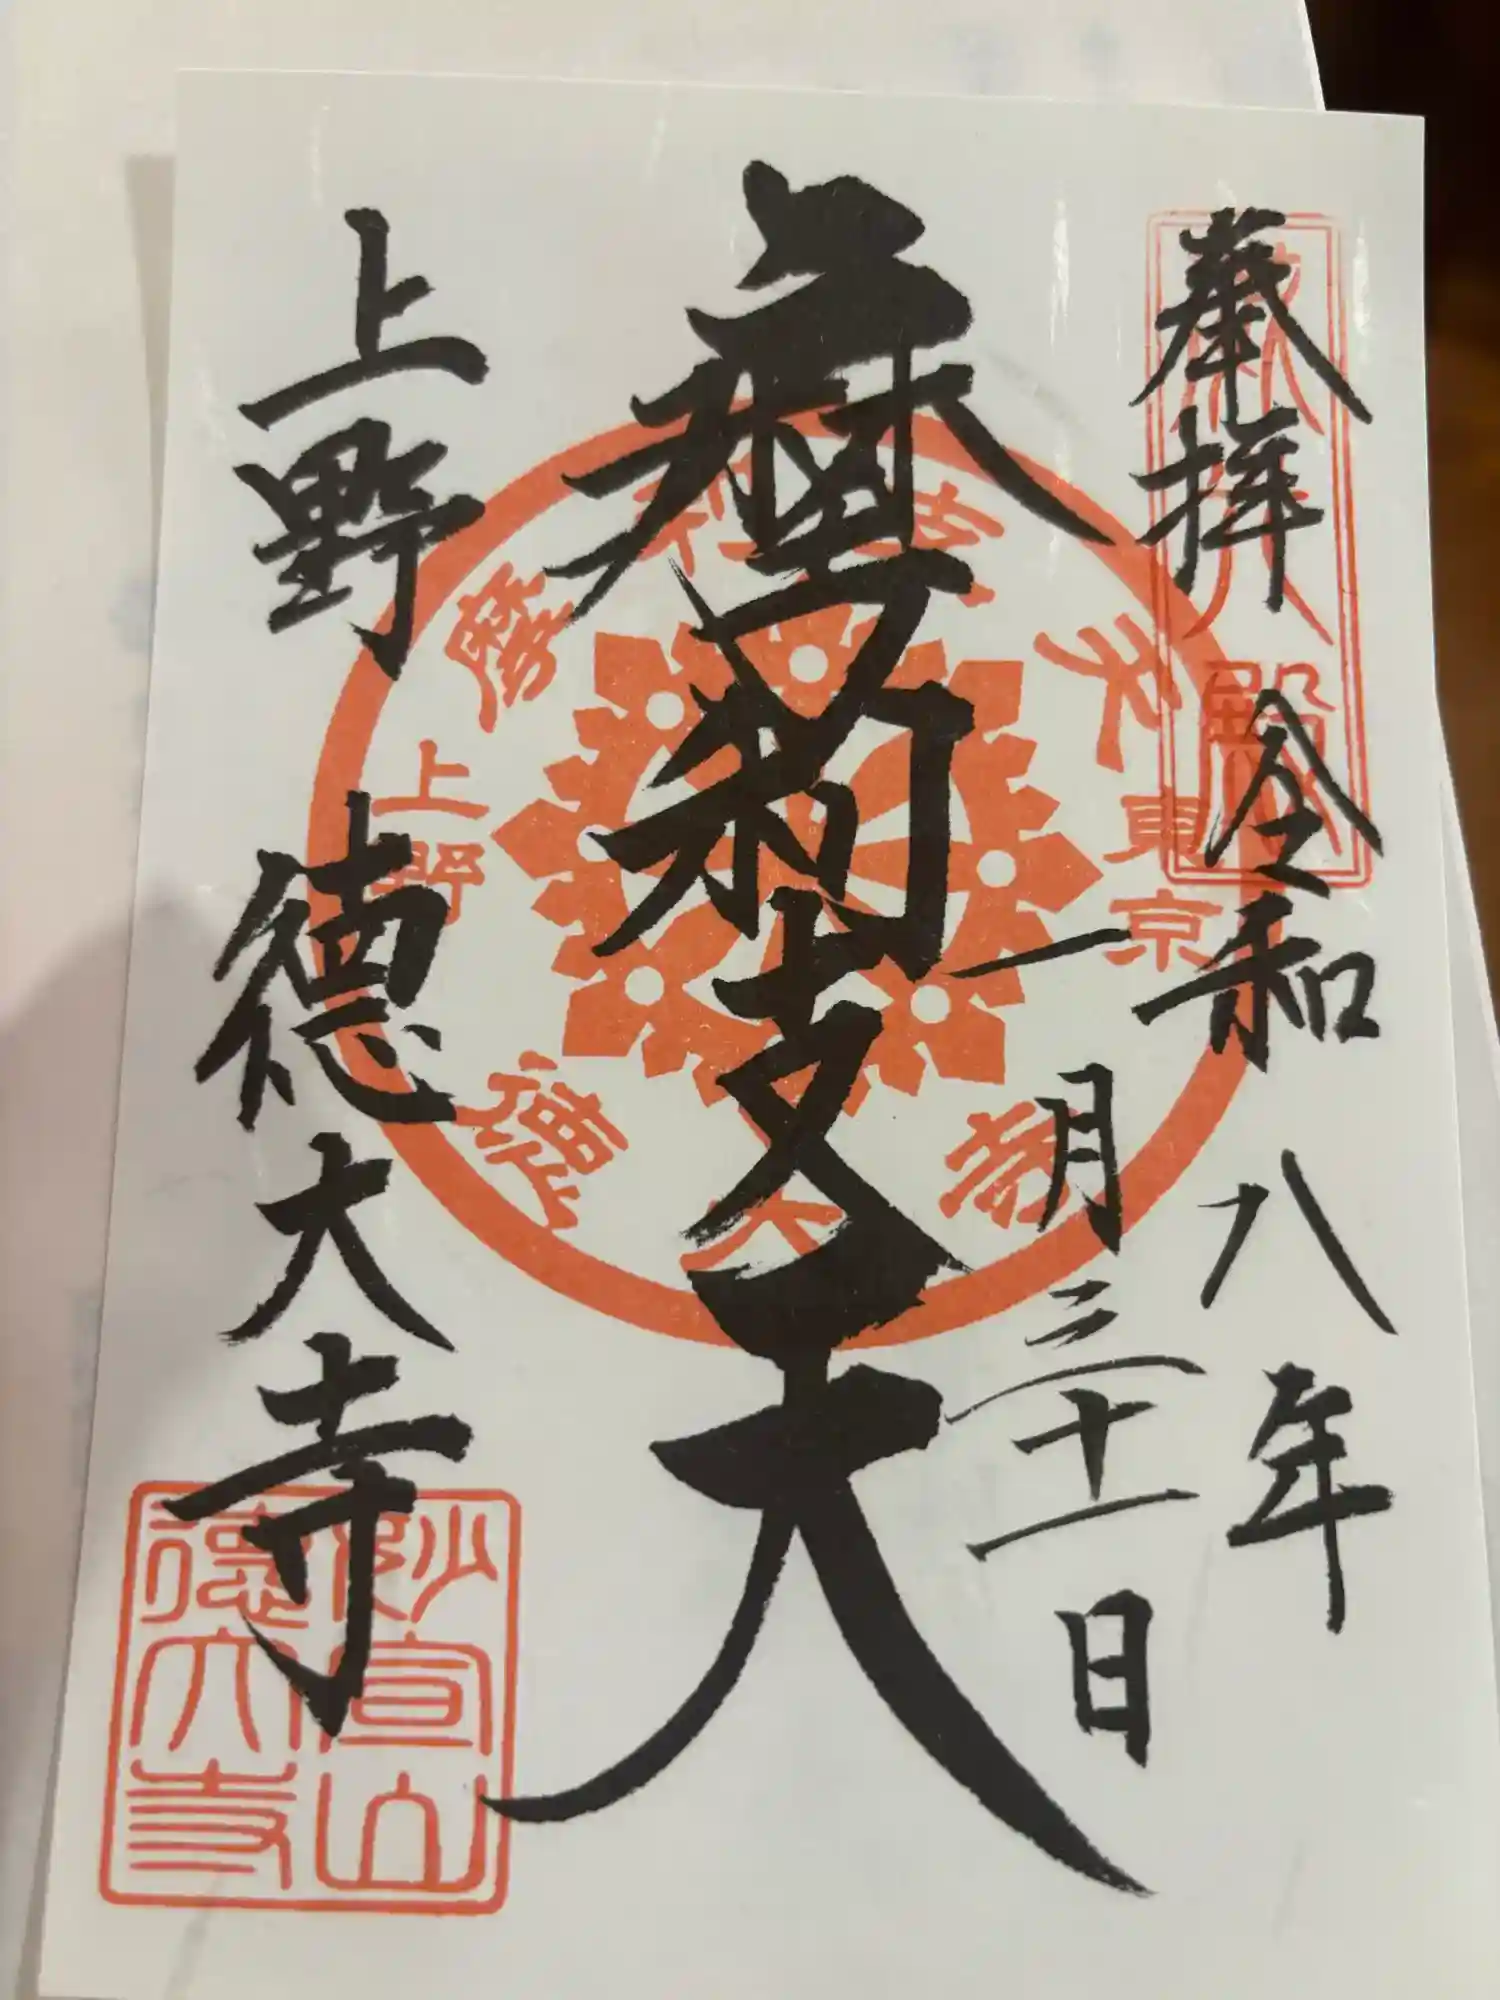 奉拝
令和八年
一月三十一日
摩利支天
上野
徳大寺
摩利支天
東京
上野
徳大寺
妙宣山
徳大寺